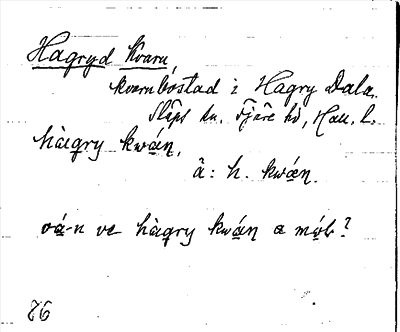 Hagryd Kvarn,
kvarnbostad i Hagry Dala.
Släps sn. Fjäre hd, Hall. l.
hàgry kwæ̀ɳ,
å: h. kwæɳ.
vá-n ve hàgry kwæɳ a móḷ?
76